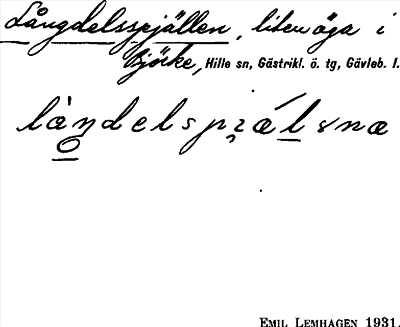 Långdelsspjällen, liten äga i
Björke, Hille sn, Gästrikl. ö. tg, Gävleb. l.
EMIL LEMHAGEN 1931.